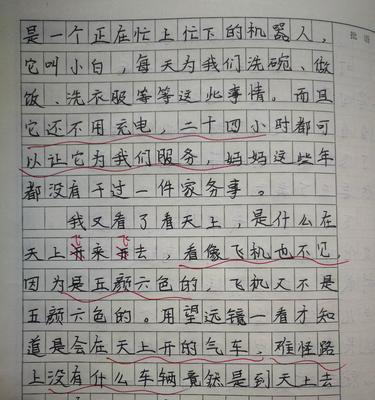 批语
是一个正在忙上忙下的机器人，
它叫小白，每天为我们洗碗、做
饭、洗衣服等等这些事情。而且
它还不用充电，二十四小时都可
以让它为我们服务，妈妈这些年
都没有干过一件家务事。
我又看了看天上，是什么在
天上飞来飞去，看像飞机也不见，
因为是五颜六色的，飞机又不是
五颜六色的。用望远镜一看才知
道是会在天上开的气车，难怪路
上没有什么车辆竟然是到天上去